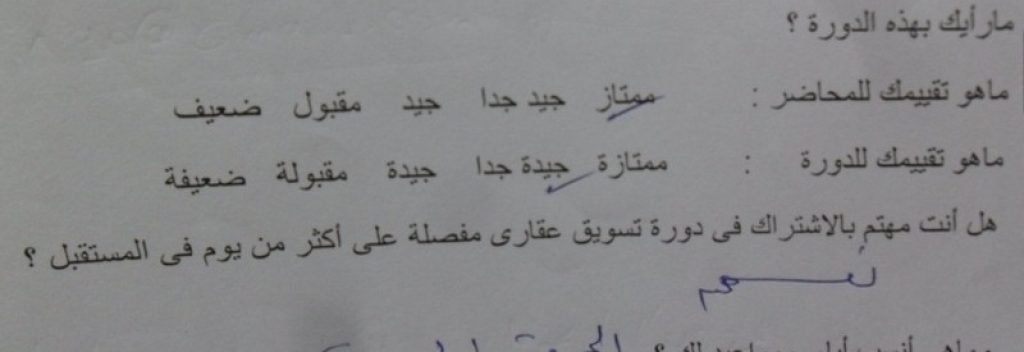 مارأيك بهذه الدورة ؟
ماهو تقييمك للمحاضر : ممتاز جيد جدا جيد مقبول ضعيف
ماهو تقييمك للدورة : ممتازة جيدة جدا جيدة مقبولة ضعيفة
هل أنت مهتم بالاشتراك فى دورة تسويق عقارى مفصلة على أكثر من يوم فى المستقبل ؟
نعم